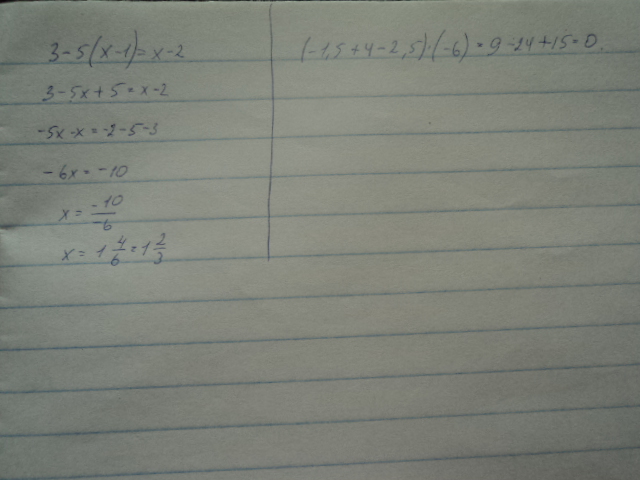 3-5(x-1)=x-2
3-5x+5=x-2
-5x-x=-2-5-3
-6x=-10
x=\frac{-10}{-6}
x=1\frac{4}{6}=1\frac{2}{3}
(-1,5+4-2,5)·(-6)=9-24+15=0.